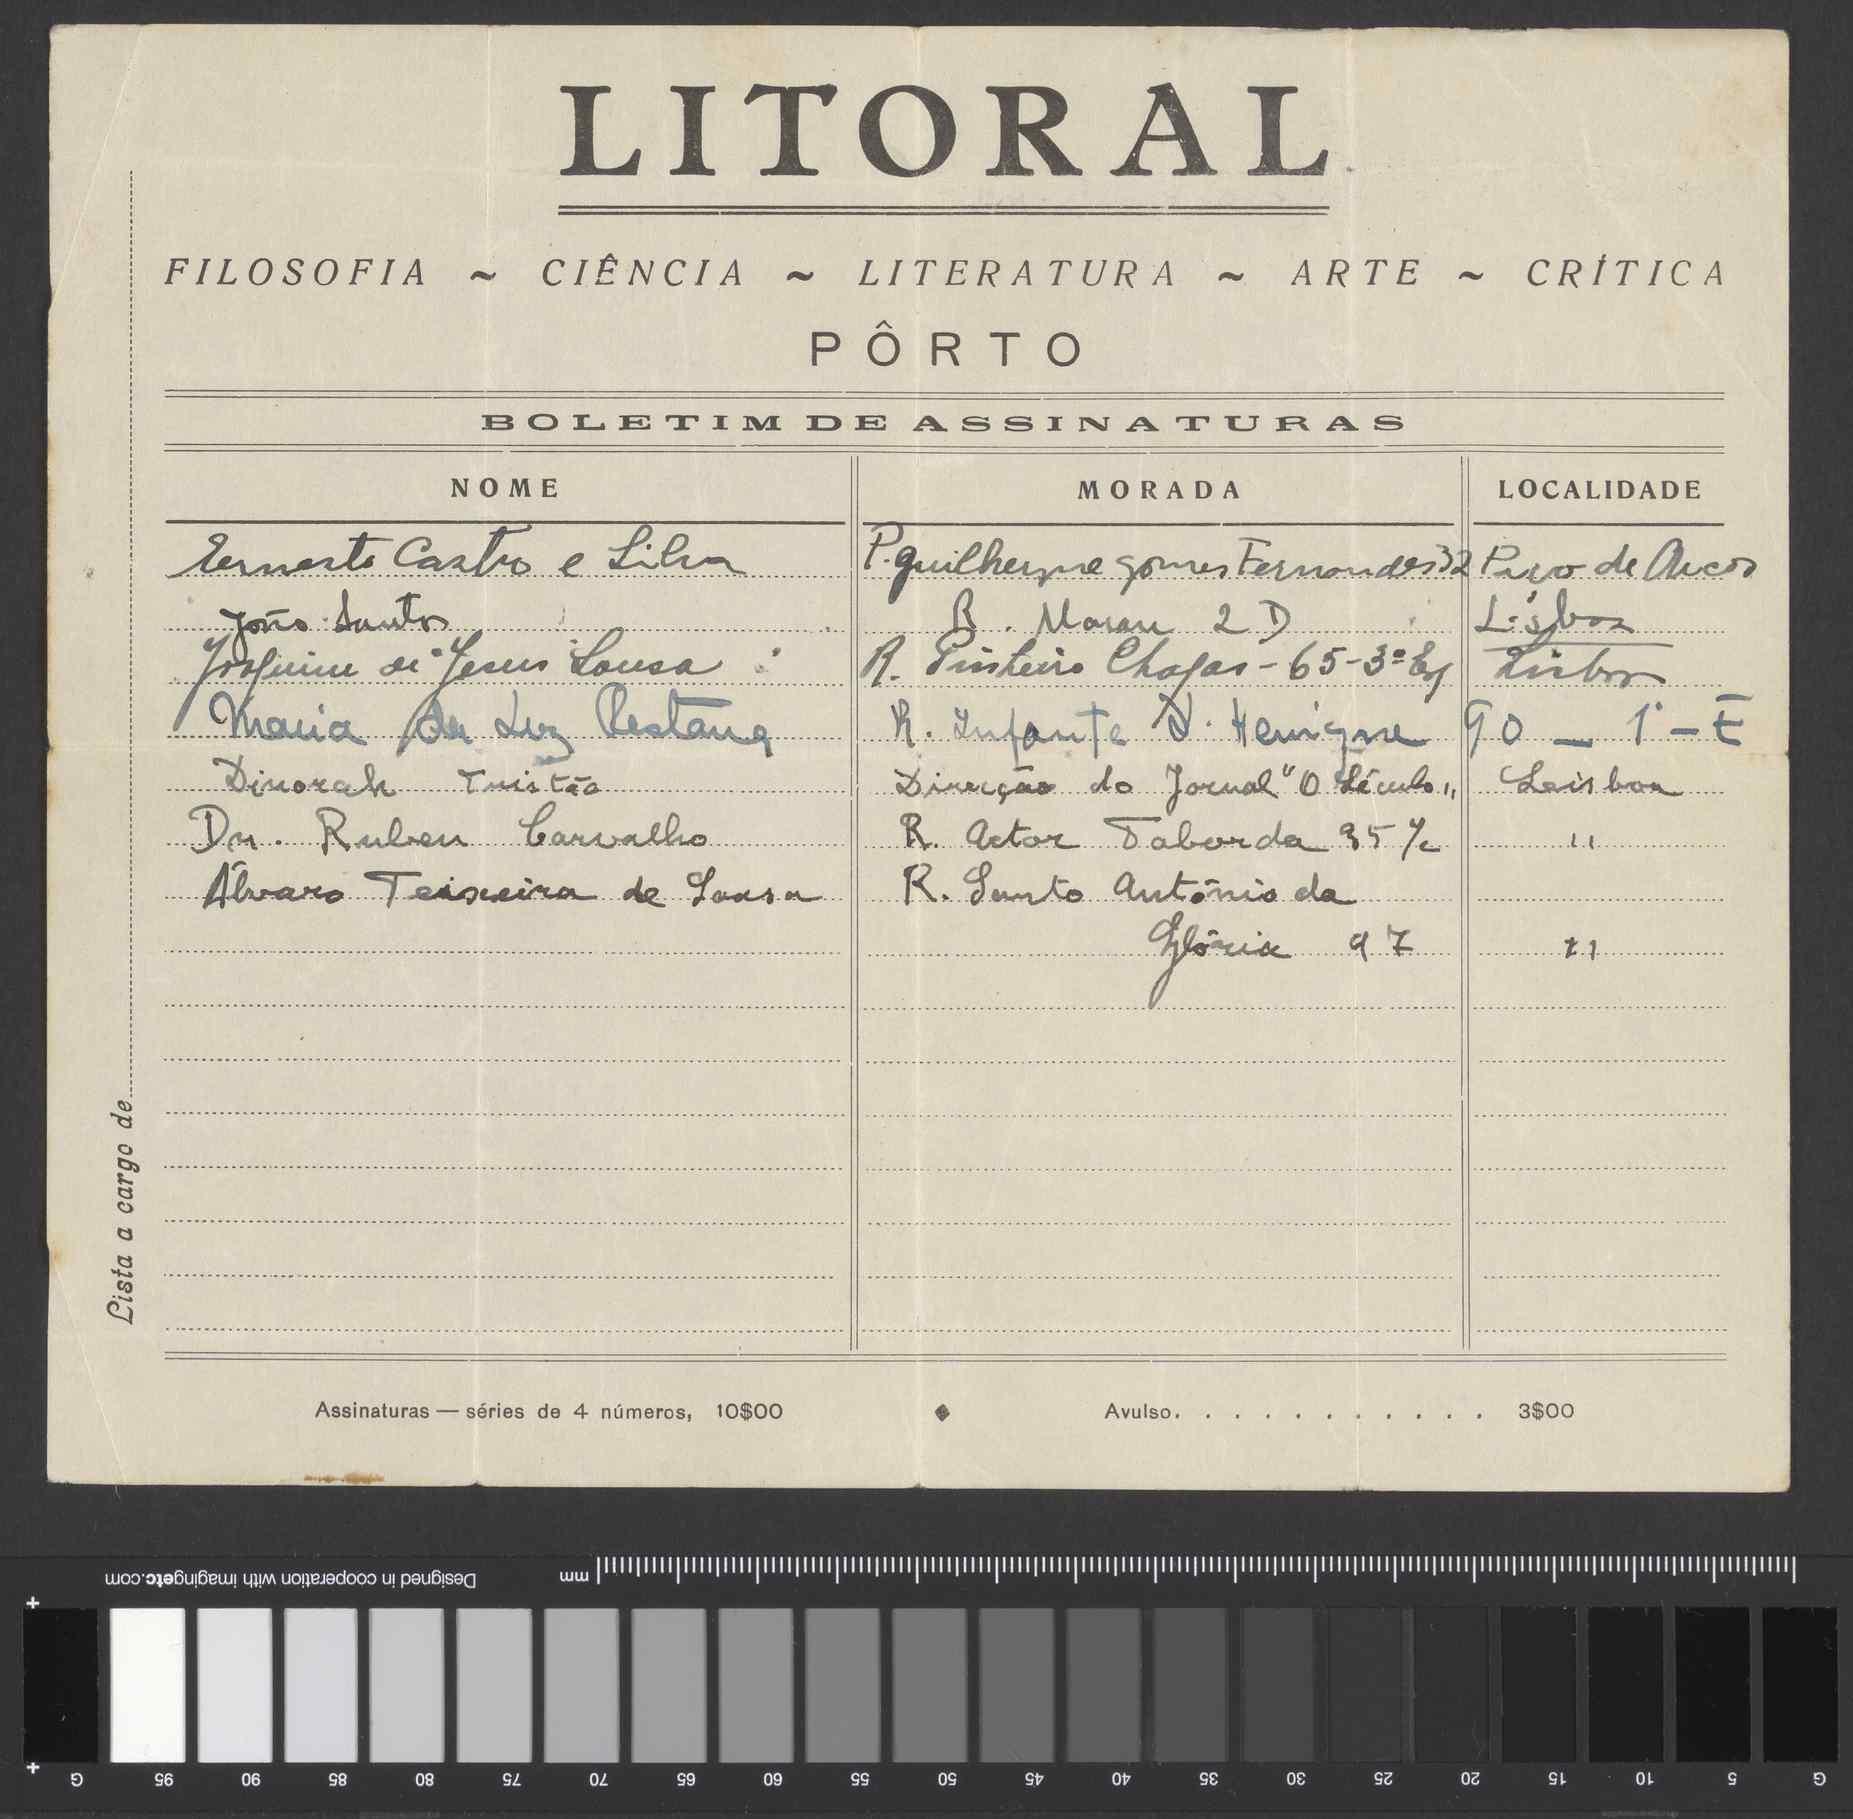 LITORAL
FILOSOFIA ~ CIÊNCIA ~ LITERATURA ~ ARTE ~ CRÍTICA
PÔRTO
BOLETIM DE ASSINATURAS
NOME MORADA LOCALIDADE
Ernesto Castro e Silva P. Guilherme Gomes Fernandes 32 Paço de Arcos
João Santos R. 2 D Lisboa
de Jesus Sousa R. Pinheiro Chagas - 65 - 3º Esq Lisboa
Maria da Luz Pestana R. Infante D. Henrique 90 _ 1º - E
Dinorah Tristão Direcção do Jornal "O Século" Lisboa
Dr. Ruben Carvalho R. Actor Taborda 35 "
Álvaro Teixeira de Sousa R. Santo António da
Glória 97 "
Lista a cargo de
Assinaturas — séries de 4 números, 10$00 Avulso. . . . . . . . . . . . 3$00
Designed in cooperation with imagingetc.com mm
G 95 90 85 80 75 70 65 60 55 50 45 40 35 30 25 20 15 10 5 G